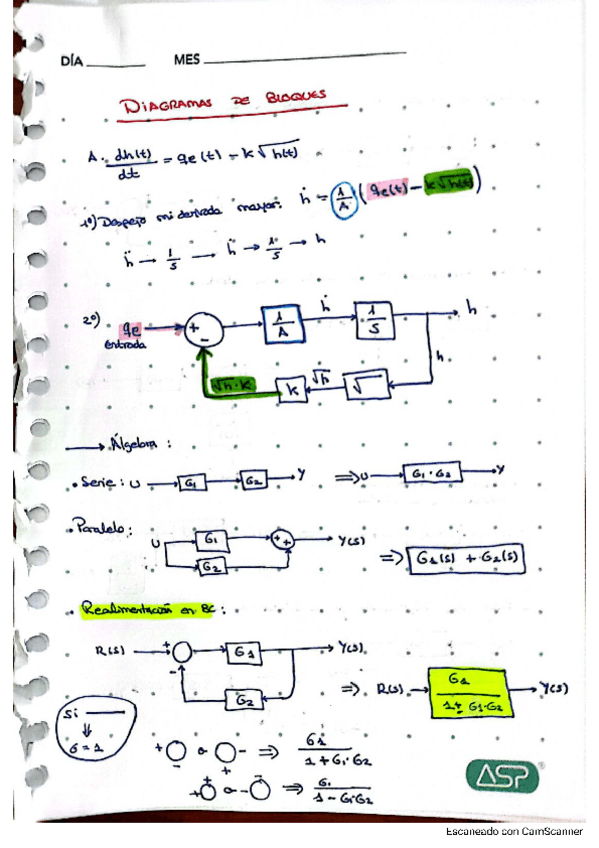 DÍA MES
DIAGRAMAS DE BLOQUES
A · dh(t)/dt = qe(t) - k√h(t)
1º) Despejo mi derivada mayor: ḣ = (1/A) (qe(t) - k√h(t))
ḧ → 1/S → ḣ → 1/S → h
2º) qe + - 1/A ḣ 1/S h
entrada
h
√h·k k √h √
→ Álgebra :
• Serie : U → G1 → G2 → Y ⇒ U → G1 · G2 → Y
• Paralelo : U G1 G2 + + Y(s) ⇒ G1(s) + G2(s)
• Realimentación en BC :
R(s) + - G1 Y(s)
G2
⇒ R(s) → G1/(1 ± G1·G2) → Y(s)
Si —
⇓
G = 1
+ - o - + ⇒ G1/(1 + G1·G2)
+ + o - - ⇒ G1/(1 - G1·G2)
ASP®
Escaneado con CamScanner